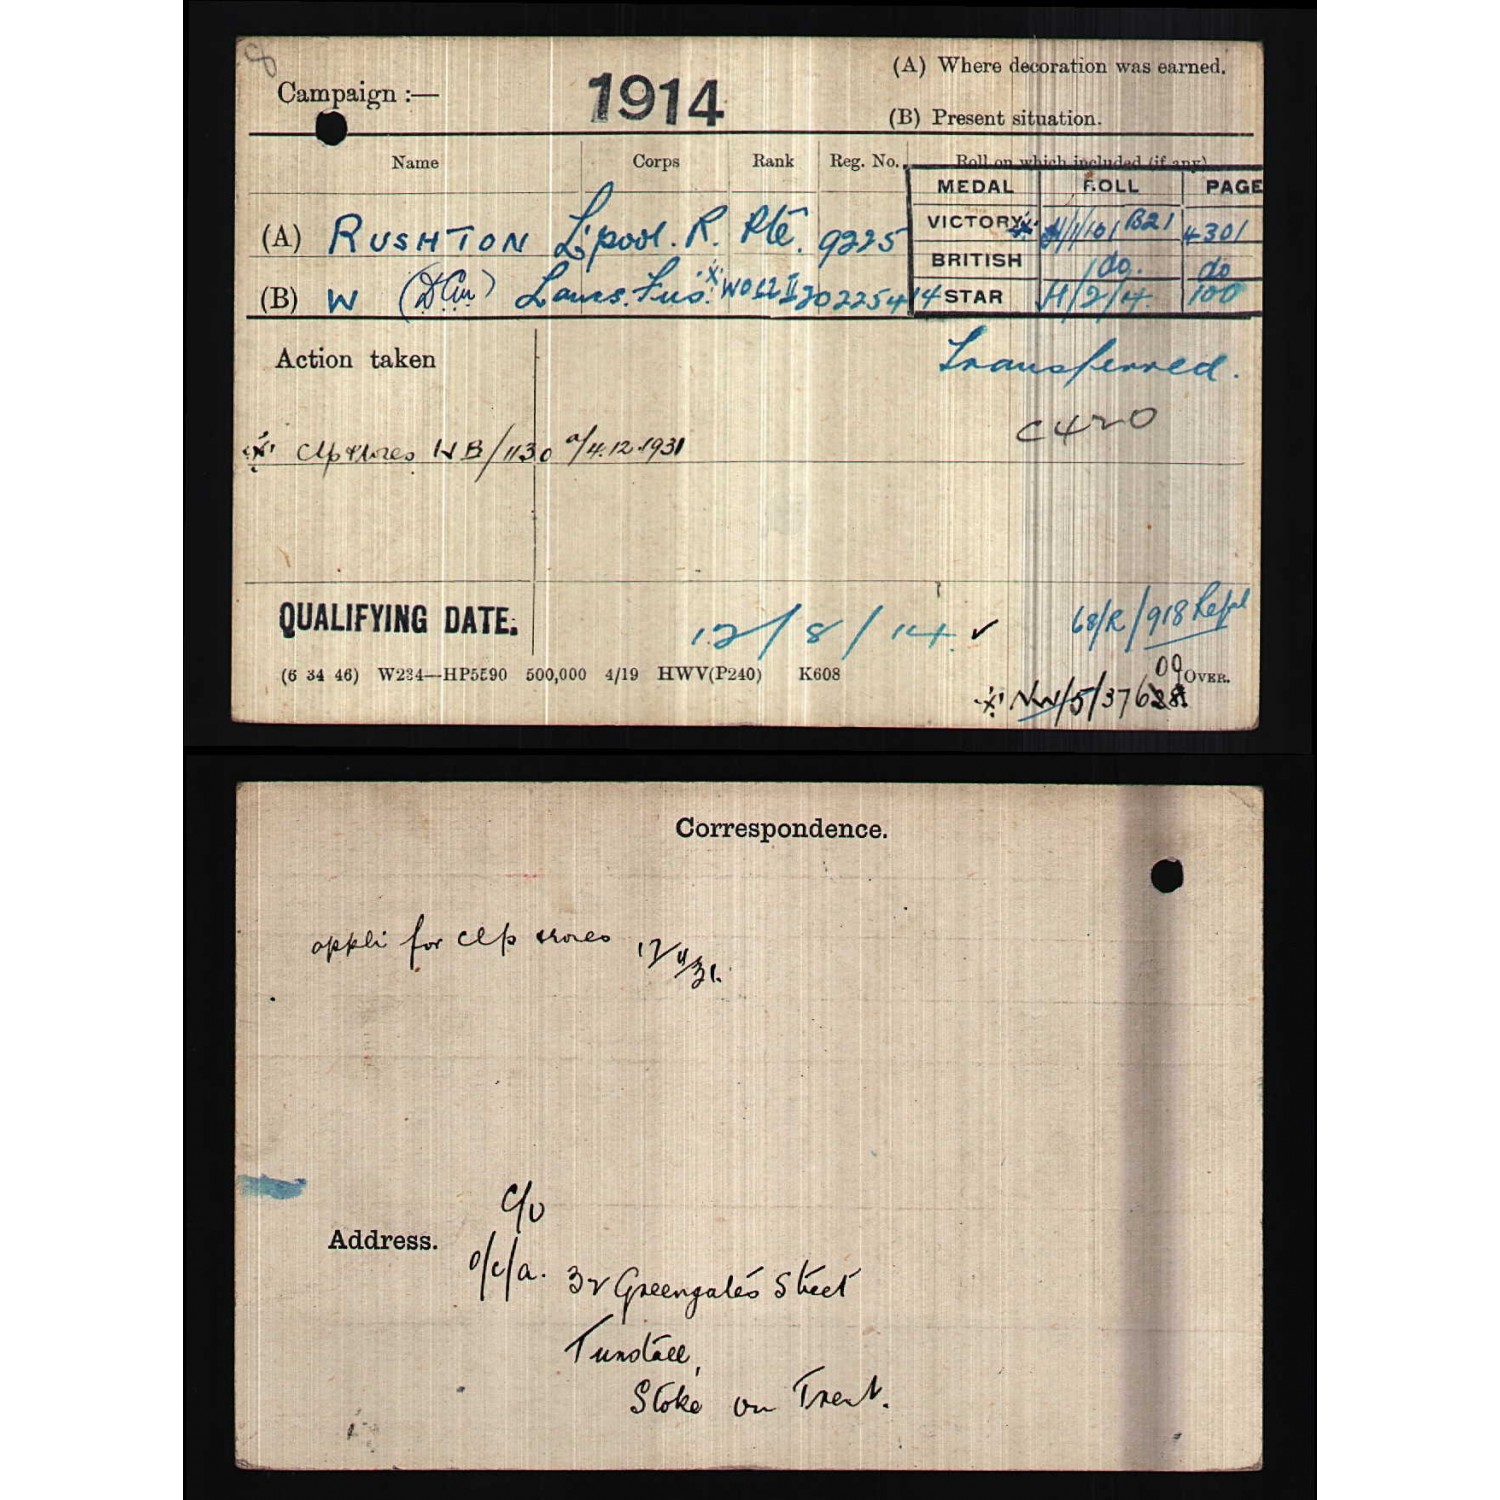 Campaign :— 1914
(A) Where decoration was earned.
(B) Present situation.
Name Corps Rank Reg. No. Roll on which included (if any)
MEDAL ROLL PAGE
(A) RUSHTON L'pool. R. Pte. 9225 VICTORY H/1/101 B21 4301
BRITISH do. do
(B) W (DCM) Lancs. Fus. WO Cl II 202254 14 STAR H/2/4. 100
Action taken
Transferred.
C420
Clp & Roses NB/1130 d/4.12.1931
QUALIFYING DATE. 12/8/14. ✓ 68/R/918
(6 34 46) W234—HP5590 500,000 4/19 HWV(P240) K608 OVER.
NW/5/37628
Correspondence.
appli for clp & roses 17/11/31.
c/o
Address. o/c/a. 32 Greengates Street
Tunstall,
Stoke on Trent.